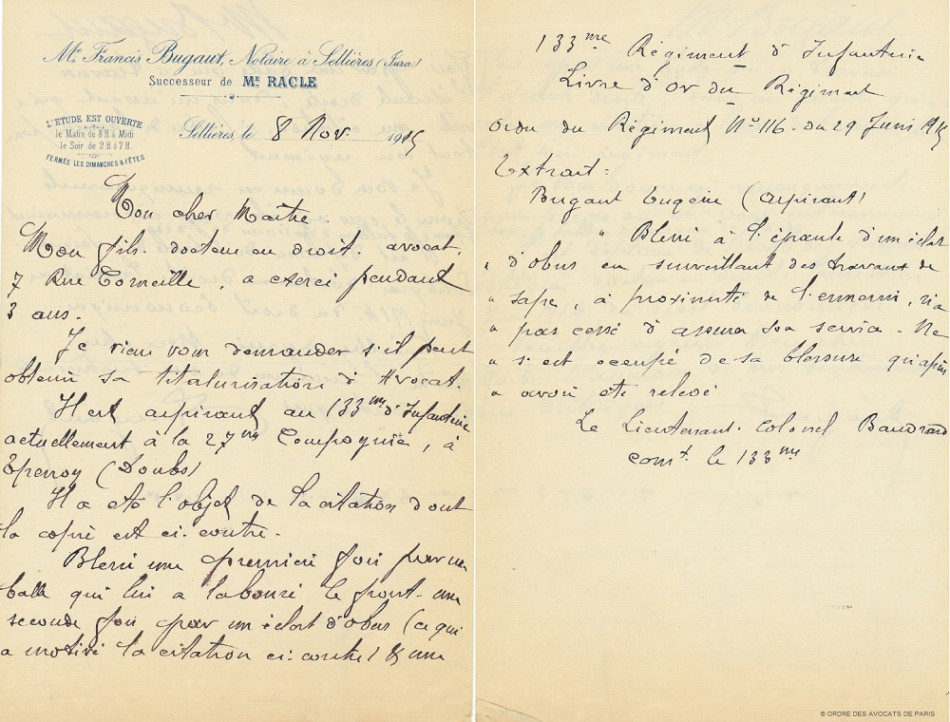 Me Francis Bugaut, Notaire à Sellières (Jura)
Successeur de Me RACLE
L'ETUDE EST OUVERTE
le Matin de 8 H. à Midi
le Soir de 2 H. à 7 H.
FERMÉE LES DIMANCHES & FÊTES
Sellières, le 8 Nov 1915
Mon cher Maître.
Mon fils. docteur en droit. avocat.
7 Rue Corneille, a exercé pendant
3 ans.
Je viens vous demander s'il peut
obtenir sa titularisation d'Avocat.
Il est aspirant au 133me d'Infanterie
actuellement à la 27me Compagnie, à
Epenoy (Doubs)
Il a été l'objet de la citation dont
la copie est ci-contre.
Blessé une première fois par une
balle qui lui a labouré le front. une
seconde fois par un éclat d'obus (ce qui
a motivé la citation ci-contre) & une
133me Régiment d'Infanterie
Livre d'or du Régiment
Ordre du Régiment No 116. du 29 Juin 1915
Extrait:
Bugaut Eugène (aspirant)
" Blessé à l'épaule d'un éclat
" d'obus en surveillant des travaux de
" sape, à proximité de l'ennemi, n'a
" pas cessé d'assurer son service. Ne
" s'est occupé de sa blessure qu'après
" avoir été relevé
Le Lieutenant-Colonel Baudrand
comt. le 133me
© ORDRE DES AVOCATS DE PARIS